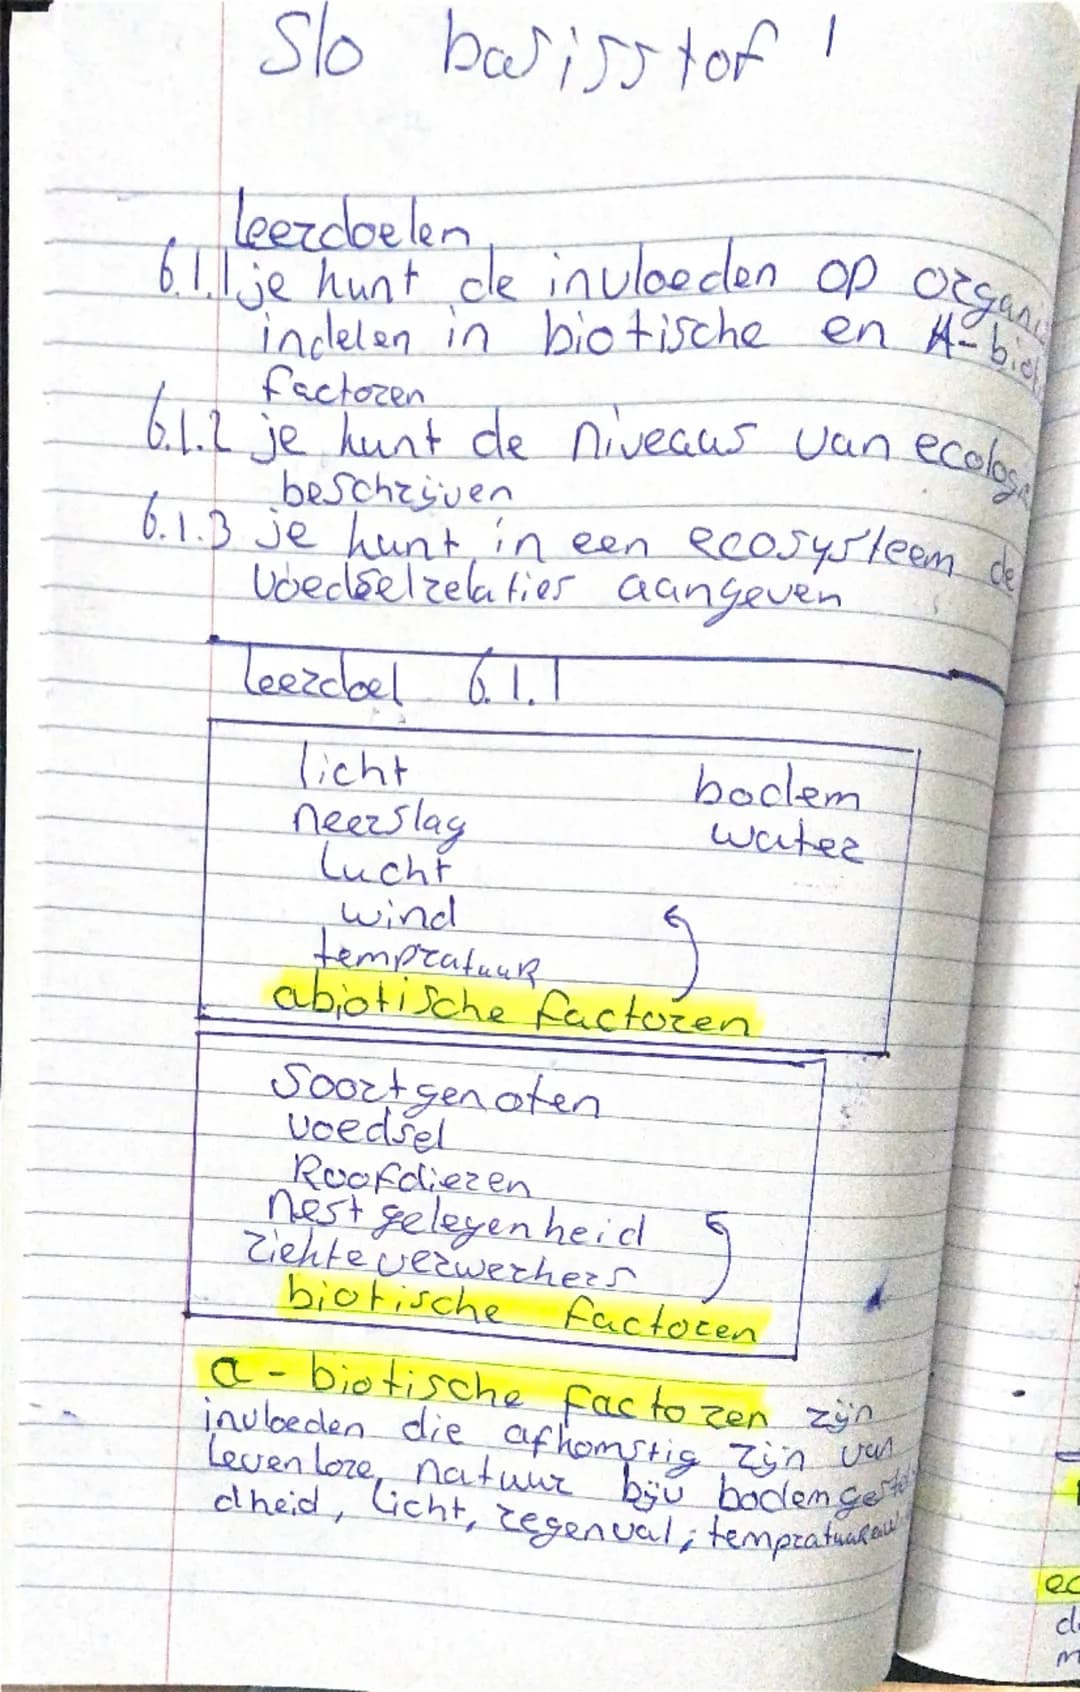 Slo basisstof 1
leerdoelen
6.1.1 je kunt de invloeden op organi
indelen in biotische en A-biot
factoren
6.1.2 je kunt de niveaus van ecolog
beschrijven
6.1.3 je kunt in een ecosysteem de
voedselrelaties aangeven
leerdoel 6.1.1
licht bodem
neerslag water
lucht
wind
tempratuur
abiotische factoren
Soortgenoten
voedsel
Roofdieren
nest gelegenheid
ziekteverwerkers
biotische factoren
a-biotische factoren zijn
invloeden die afkomstig zijn van
Levenloze natuur bijv bodemgest
dheid, licht, regenval, tempratuur
ec
d
m